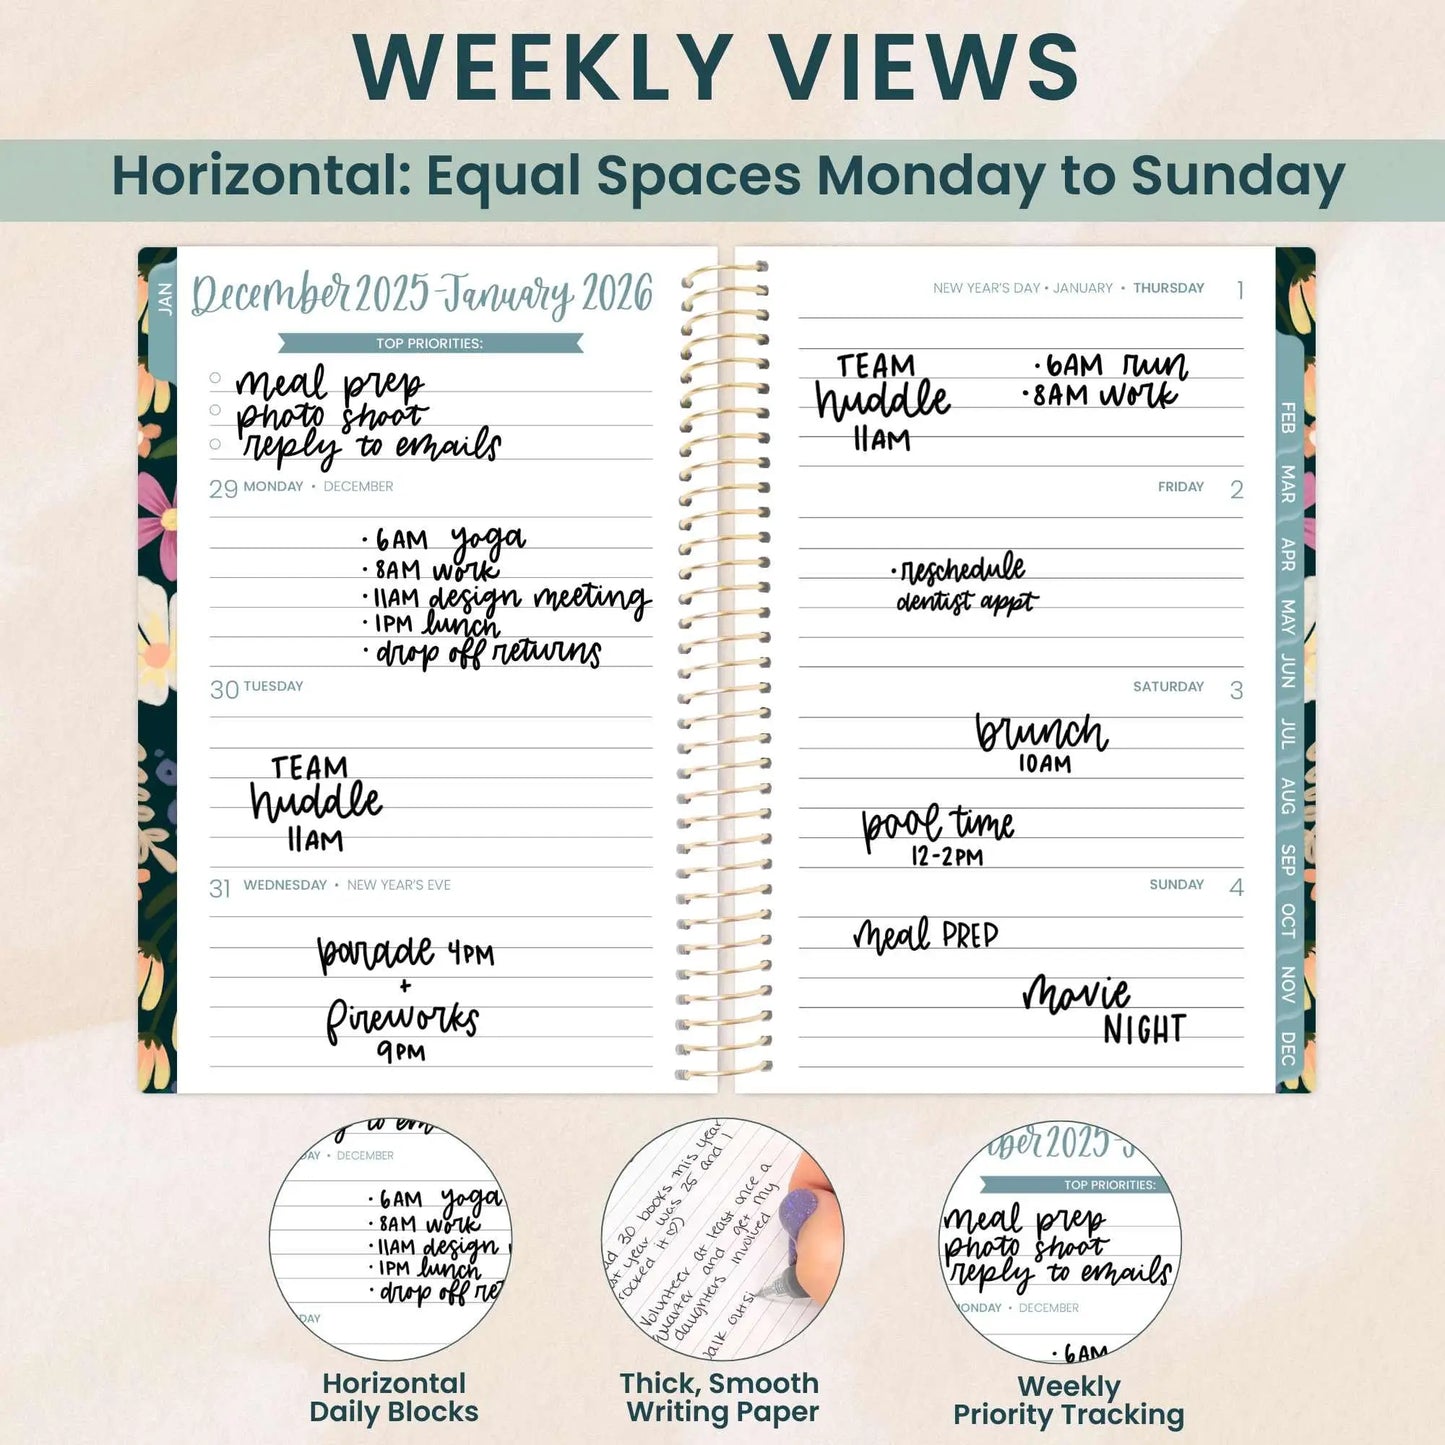 WEEKLY VIEWS
Horizontal: Equal Spaces Monday to Sunday
JAN
December 2025-January 2026
TOP PRIORITIES:
meal prep
photo shoot
reply to emails
29 MONDAY • DECEMBER
• 6AM yoga
• 8AM work
• 11AM design meeting
• 1PM lunch
• drop off returns
30 TUESDAY
TEAM
huddle
11AM
31 WEDNESDAY • NEW YEAR'S EVE
parade 4PM
+
fireworks
9PM
NEW YEAR'S DAY • JANUARY • THURSDAY 1
TEAM
huddle
11AM
• 6AM run
• 8AM work
FRIDAY 2
• reschedule
dentist appt
SATURDAY 3
brunch
10AM
pool time
12-2PM
SUNDAY 4
meal PREP
movie
NIGHT
FEB
MAR
APR
MAY
JUN
JUL
AUG
SEP
OCT
NOV
DEC
to em
DAY • DECEMBER
• 6AM yoga
• 8AM work
• 11AM design
• 1PM lunch
• drop off ret
DAY
Horizontal
Daily Blocks
30 books this year
year was 25 and I
rocked it ♡))
Volunteer at least once a
quarter and get my
daughters involved
alk outsi
Thick, Smooth
Writing Paper
ber 2025-J
TOP PRIORITIES:
meal prep
photo shoot
reply to emails
MONDAY • DECEMBER
• 6AM
Weekly
Priority Tracking